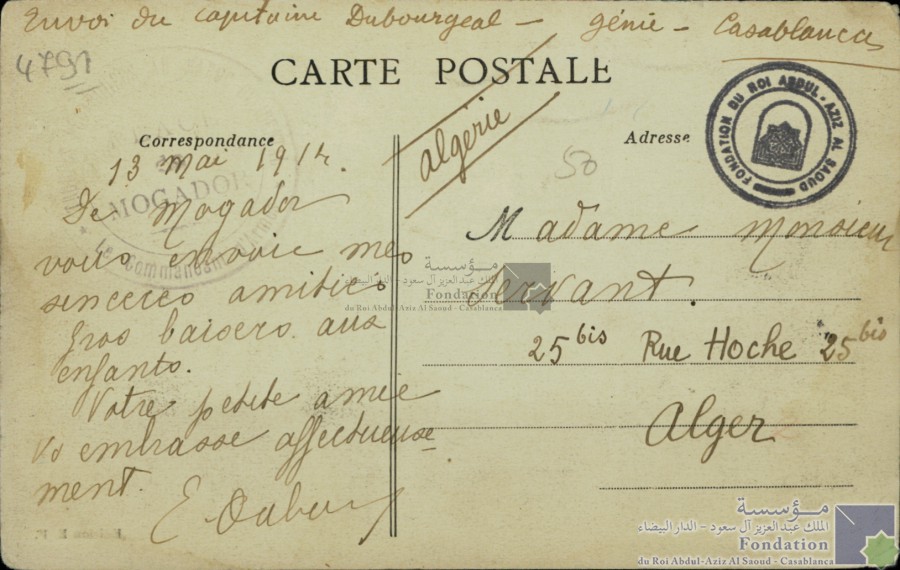 Envoi du capitaine Dubourgeal - génie - Casablanca
4791
CARTE POSTALE
algérie
FONDATION DU ROI ABDUL-AZIZ AL SAOUD
Correspondance
Adresse
50
13 Mai 1914.
MOGADOR
De Mogador
vous envoie mes
sincères amitiés
Gros baisers aux
enfants.
Votre petite amie
Vs embrasse affectueuse
ment.
Le Commandant
Madame Monsieur
Servant.
25 bis Rue Hoche 25 bis
Alger
مؤسسة
الملك عبد العزيز آل سعود - الدار البيضاء
Fondation
du Roi Abdul-Aziz Al Saoud - Casablanca
مؤسسة
الملك عبد العزيز آل سعود - الدار البيضاء
Fondation
du Roi Abdul-Aziz Al Saoud - Casablanca